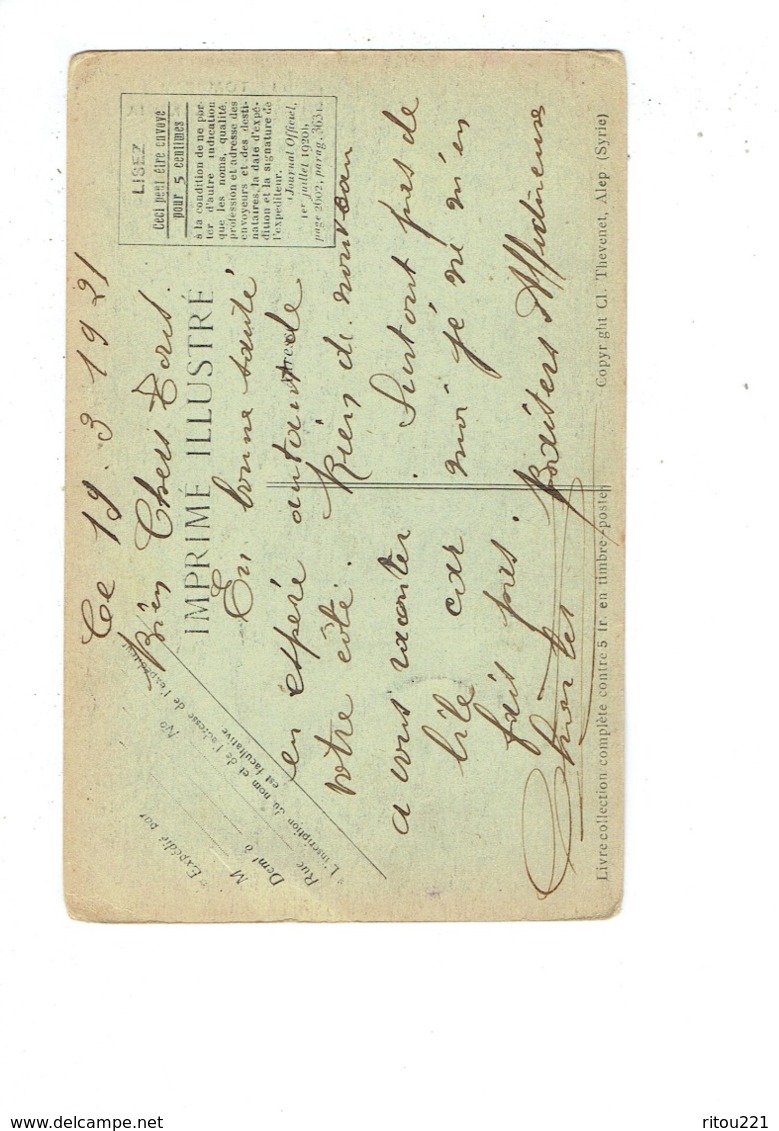 Ce 19. 3 1921
Bien Chers Tous.
En bonne santé
en espère autant de
votre côté. Rien de nouveau
a vous raconter. Surtout pas de
car moi je ne m'en
fais pas. Baisers Affectueux
Charles
IMPRIMÉ ILLUSTRÉ
LISEZ
Ceci peut être envoyé
pour 5 centimes
à la condition de ne por-
ter d'autre indication
que les noms, qualité,
profession et adresse des
envoyeurs et des desti-
nataires, la date d'expé-
dition et la signature de
l'expéditeur.
(Journal Officiel,
1er juillet 1920),
page 2602, parag. 363).
Expédié par
M
Demt à
Rue
No
L'inscription du nom et de l'adresse de l'expéditeur
est facultative
Livre collection complète contre 5 fr. en timbre-poste
Copyright Cl. Thevenet, Alep (Syrie)
ritou221